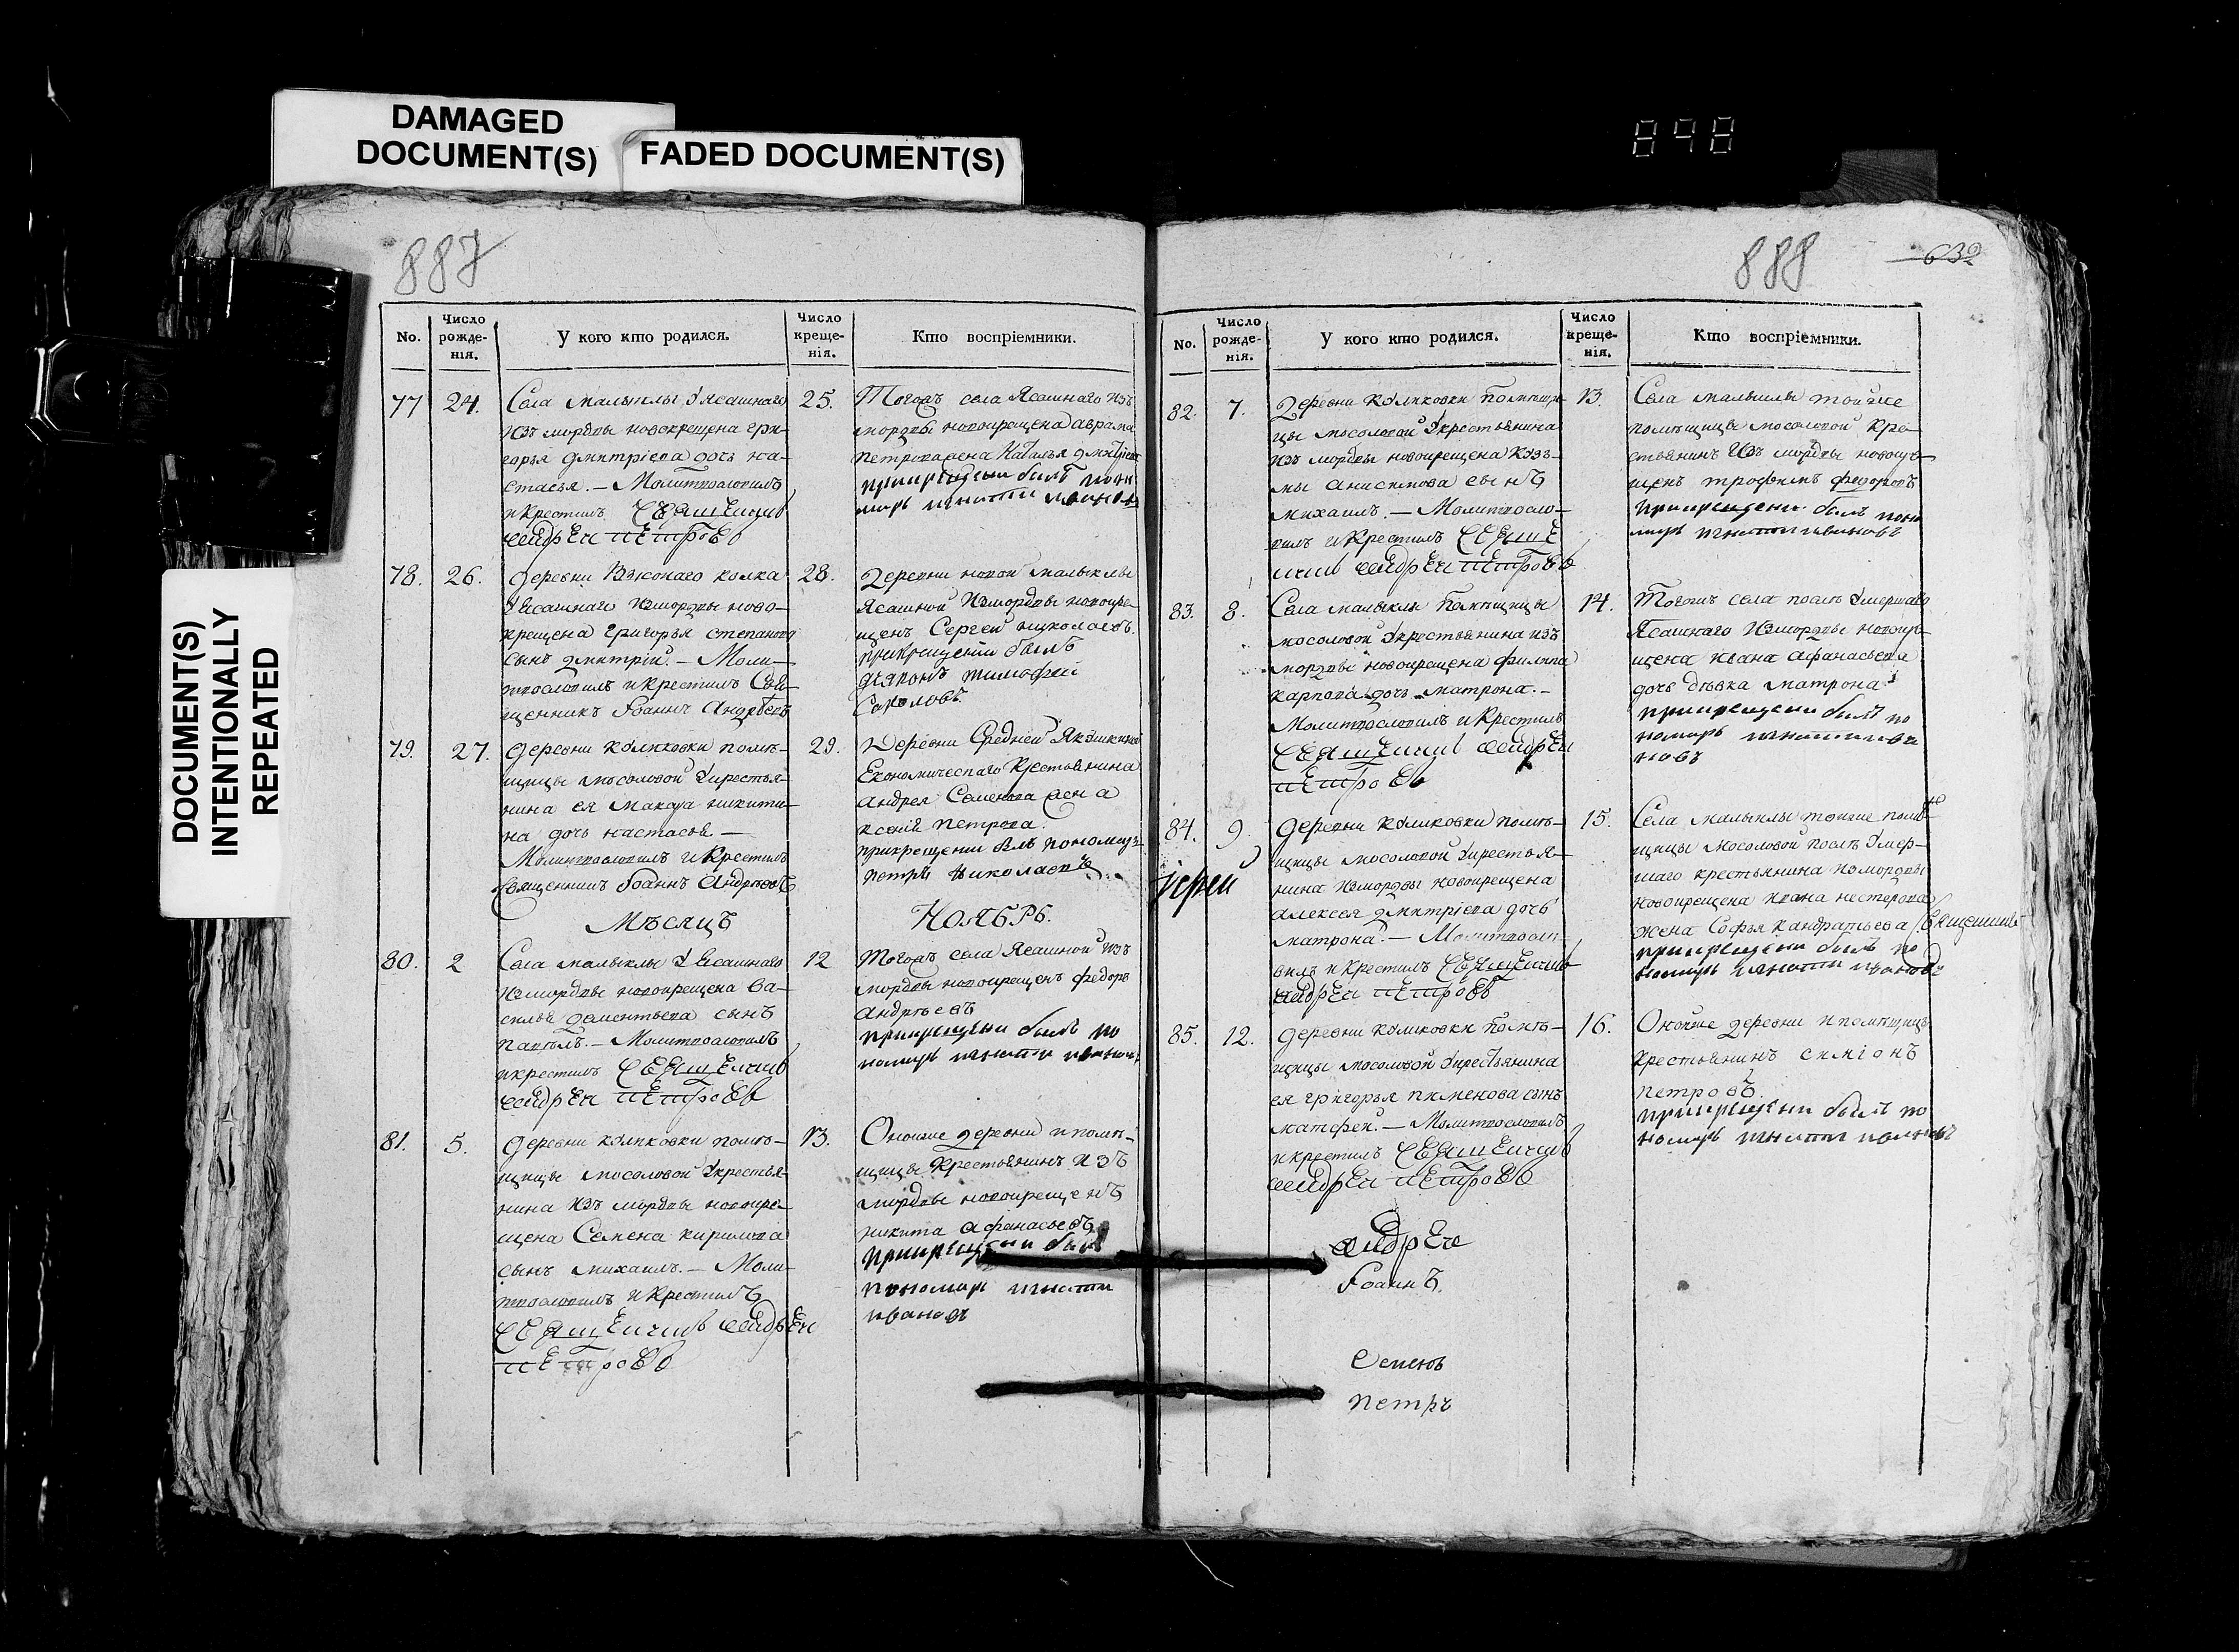 DAMAGED
DOCUMENT(S)
FADED DOCUMENT(S)
DOCUMENT(S)
INTENTIONALLY
REPEATED
898
887
No.
Число
рожде-
нія.
У кого кто родился.
Число
креще-
нія.
Кто воспріемники.
77
24.
Села малыклы Уясашнаго
изъ мордвы новокрещена гри-
горья дмитріева дочь на-
стасья. — Молитвословилъ
и крестилъ священникъ
андрей петровъ
25.
Тогожъ села Ясашнаго изъ
мордвы новокрещена аврама
петрова жена Наталья дмитріева
прикрещени былъ поно
марь игнатей иванов
78.
26.
деревни Вяжонаго колка
Уясашнаго измордвы ново-
крещена григорья степанова
сынъ дмитрій. — Моли-
твословилъ и крестилъ Свя-
щенникъ Іоаннъ Андреевъ
28.
деревни новой малыклы
Ясашной Измордвы новокре-
щенъ Сергей николаевъ.
прикрещении былъ
дьяконъ тимофей
Соколовъ.
79.
27.
деревни куликовки помѣ-
щицы мосоловой Укрестья-
нина ея макара никити-
на дочь настасья —
Молитвословилъ и крестилъ
Священникъ Іоаннъ Андреевъ
29.
Деревни Средней Якушкиной
Економическаго крестьянина
андрея Семенова жена
ксенія петрова.
прикрещении былъ пономарь
петръ николаевъ
Мѣсяцъ
НОЯБРЬ.
80.
2
Села малыклы Уясашнаго
измордвы новокрещена ва-
силья дементьева сынъ
павелъ. — Молитвословилъ
и крестилъ священникъ
андрей петровъ
12
Тогожъ села Ясашной изъ
мордвы новокрещенъ федоръ
андреевъ
прикрещени былъ по
номарь игнатей иванов
81.
5.
деревни куликовки помѣ-
щицы мосоловой Укрестья-
нина изъ мордвы новокре-
щена Семена кирилова
сынъ михаилъ. — Моли-
твословилъ и крестилъ
священникъ андрей
петровъ
13.
Оной же деревни и помѣ-
щицы крестьянинъ изъ
мордвы новокрещенъ
никита афанасьевъ
прикрещени былъ
пономарь игнатей
ивановъ
888
632
No.
Число
рожде-
нія.
У кого кто родился.
Число
креще-
нія.
Кто воспріемники.
82.
7.
деревни куликовки помѣщи-
цы мосоловой Укрестьянина
изъ мордвы новокрещена кузь-
мы анисимова сынъ
михаилъ. — Молитвосло-
вилъ и крестилъ священ
никъ андрей петровъ
13.
Села малыклы той же
помѣщицы мосоловой кре-
стьянинъ изъ мордвы новокре-
щенъ трофимъ федоровъ
прикрещени былъ поно
марь игнатей ивановъ
83.
8.
Села малыклы помѣщицы
мосоловой Укрестьянина изъ
мордвы новокрещена филипа
карпова дочь матрона. —
Молитвословилъ и крестилъ
священникъ андрей
петровъ
14.
Тогожъ села послѣ Умершаго
Ясашнаго измордвы новокре-
щена ивана афанасьева
дочь дѣвка матрона
прикрещени былъ по
номарь игнатей ива
новъ
84.
9.
деревни куликовки помѣ-
щицы мосоловой Укрестья-
нина измордвы новокрещена
алексея дмитріева дочь
матрона. — Молитвосло-
вилъ и крестилъ священникъ
андрей петровъ
15.
Села малыклы той же помѣ-
щицы мосоловой послѣ Умер-
шаго крестьянина измордвы
новокрещена ивана нестерова
жена Софья кандратьева
прикрещени былъ по
номарь игнатей иванов
іерей
Священникъ
85.
12.
деревни куликовки помѣ-
щицы мосоловой Укрестьянина
ея григорья пименова сынъ
матфей. — Молитвословилъ
и крестилъ священникъ
андрей петровъ
16.
Оной же деревни и помѣщицы
крестьянинъ симіонъ
петровъ.
прикрещени былъ по
номарь игнатей ивановъ
андрей
Іоаннъ.
Семенъ
петръ